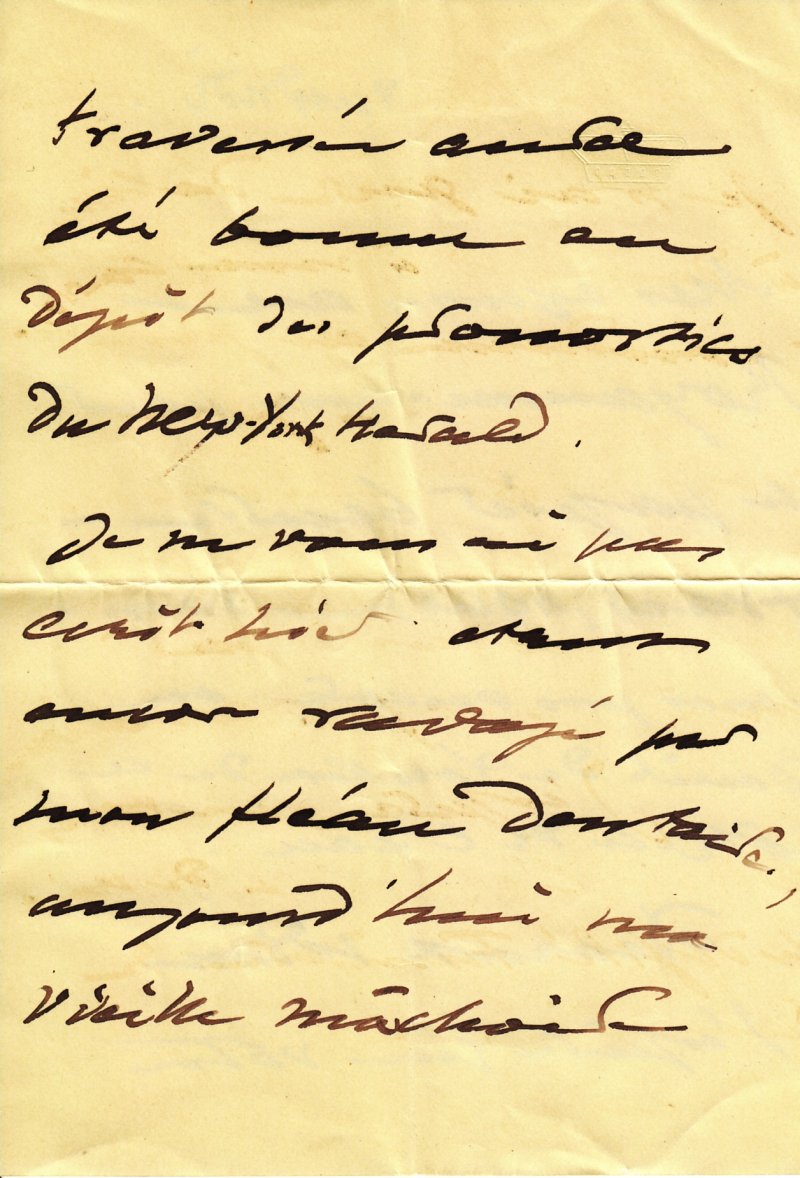 traversée aura
été bonne en
dépôt des pronostics
du New-York Herald.
Je ne vous ai pas
écrit hier étant
encore ravagé par
mon fléau dentaire,
aujourd'hui ma
vieille mâchoire